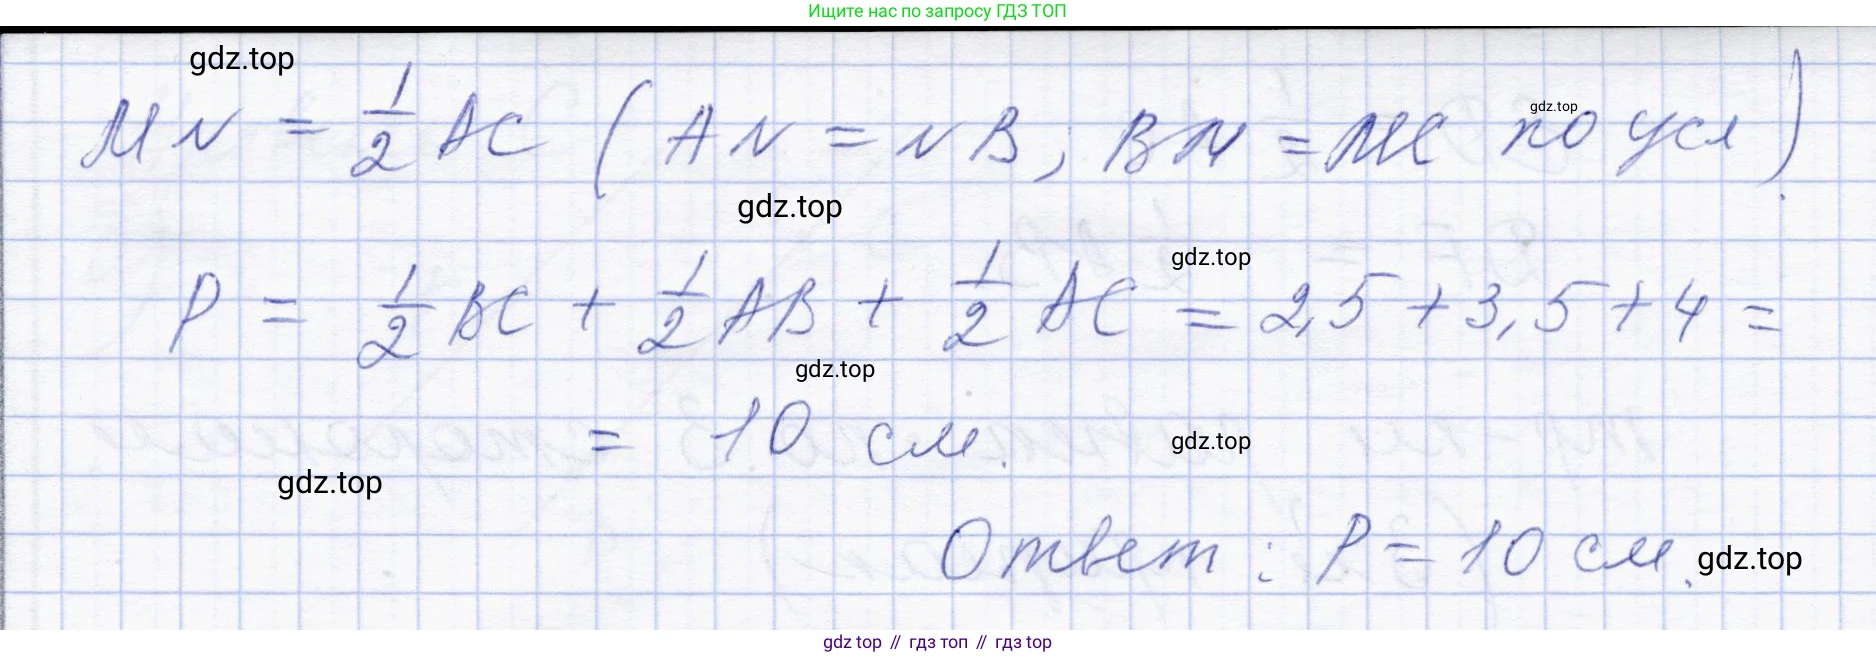 Ищите нас по запросу ГДЗ ТОП
gdz.top
MN = 1/2 AC (AN = NB; BM = MC по усл)
gdz.top
gdz.top
P = 1/2 BC + 1/2 AB + 1/2 AC = 2,5 + 3,5 + 4 =
gdz.top
gdz.top
= 10 см.
gdz.top
gdz.top
Ответ: P = 10 см.
gdz.top
gdz top // гдз топ // гдз top